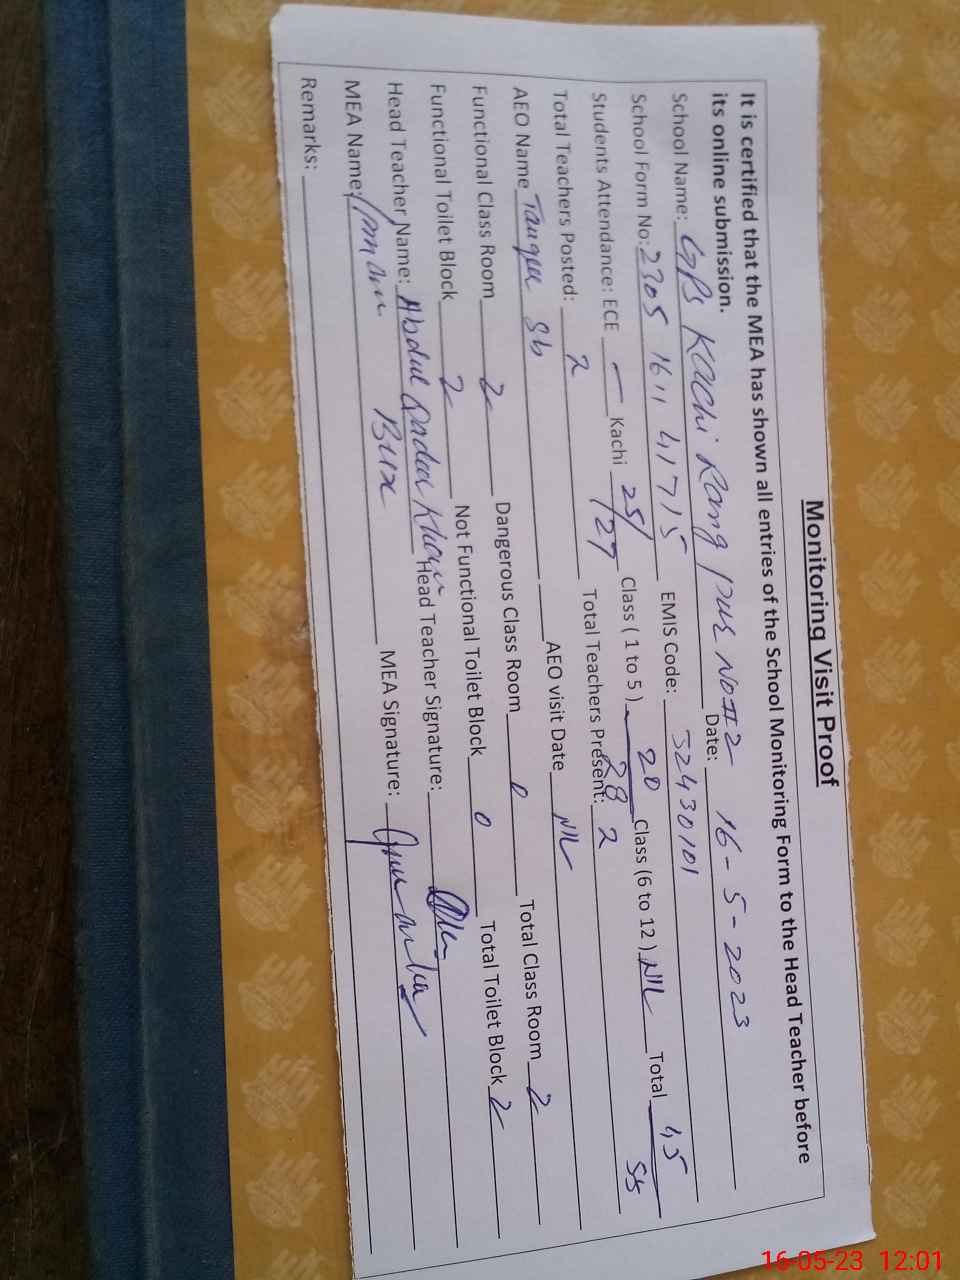 Monitoring Visit Proof
It is certified that the MEA has shown all entries of the School Monitoring Form to the Head Teacher before
its online submission.
School Name: GPS Kachi Rang pur NO#2 Date: 16-5-2023
School Form No: 2305 1611 41715 EMIS Code: 32430101
Students Attendance: ECE — Kachi 25/27 Class ( 1 to 5 ) 20/28 Class (6 to 12 ) NIL Total 45/55
Total Teachers Posted: 2 Total Teachers Present: 2
AEO Name Sb AEO visit Date NIL
Functional Class Room 2 Dangerous Class Room 0 Total Class Room 2
Functional Toilet Block 2 Not Functional Toilet Block 0 Total Toilet Block 2
Head Teacher Name: Abdul Qadir Khan Head Teacher Signature:
MEA Name: Bux MEA Signature:
Remarks:
16-05-23 12:01